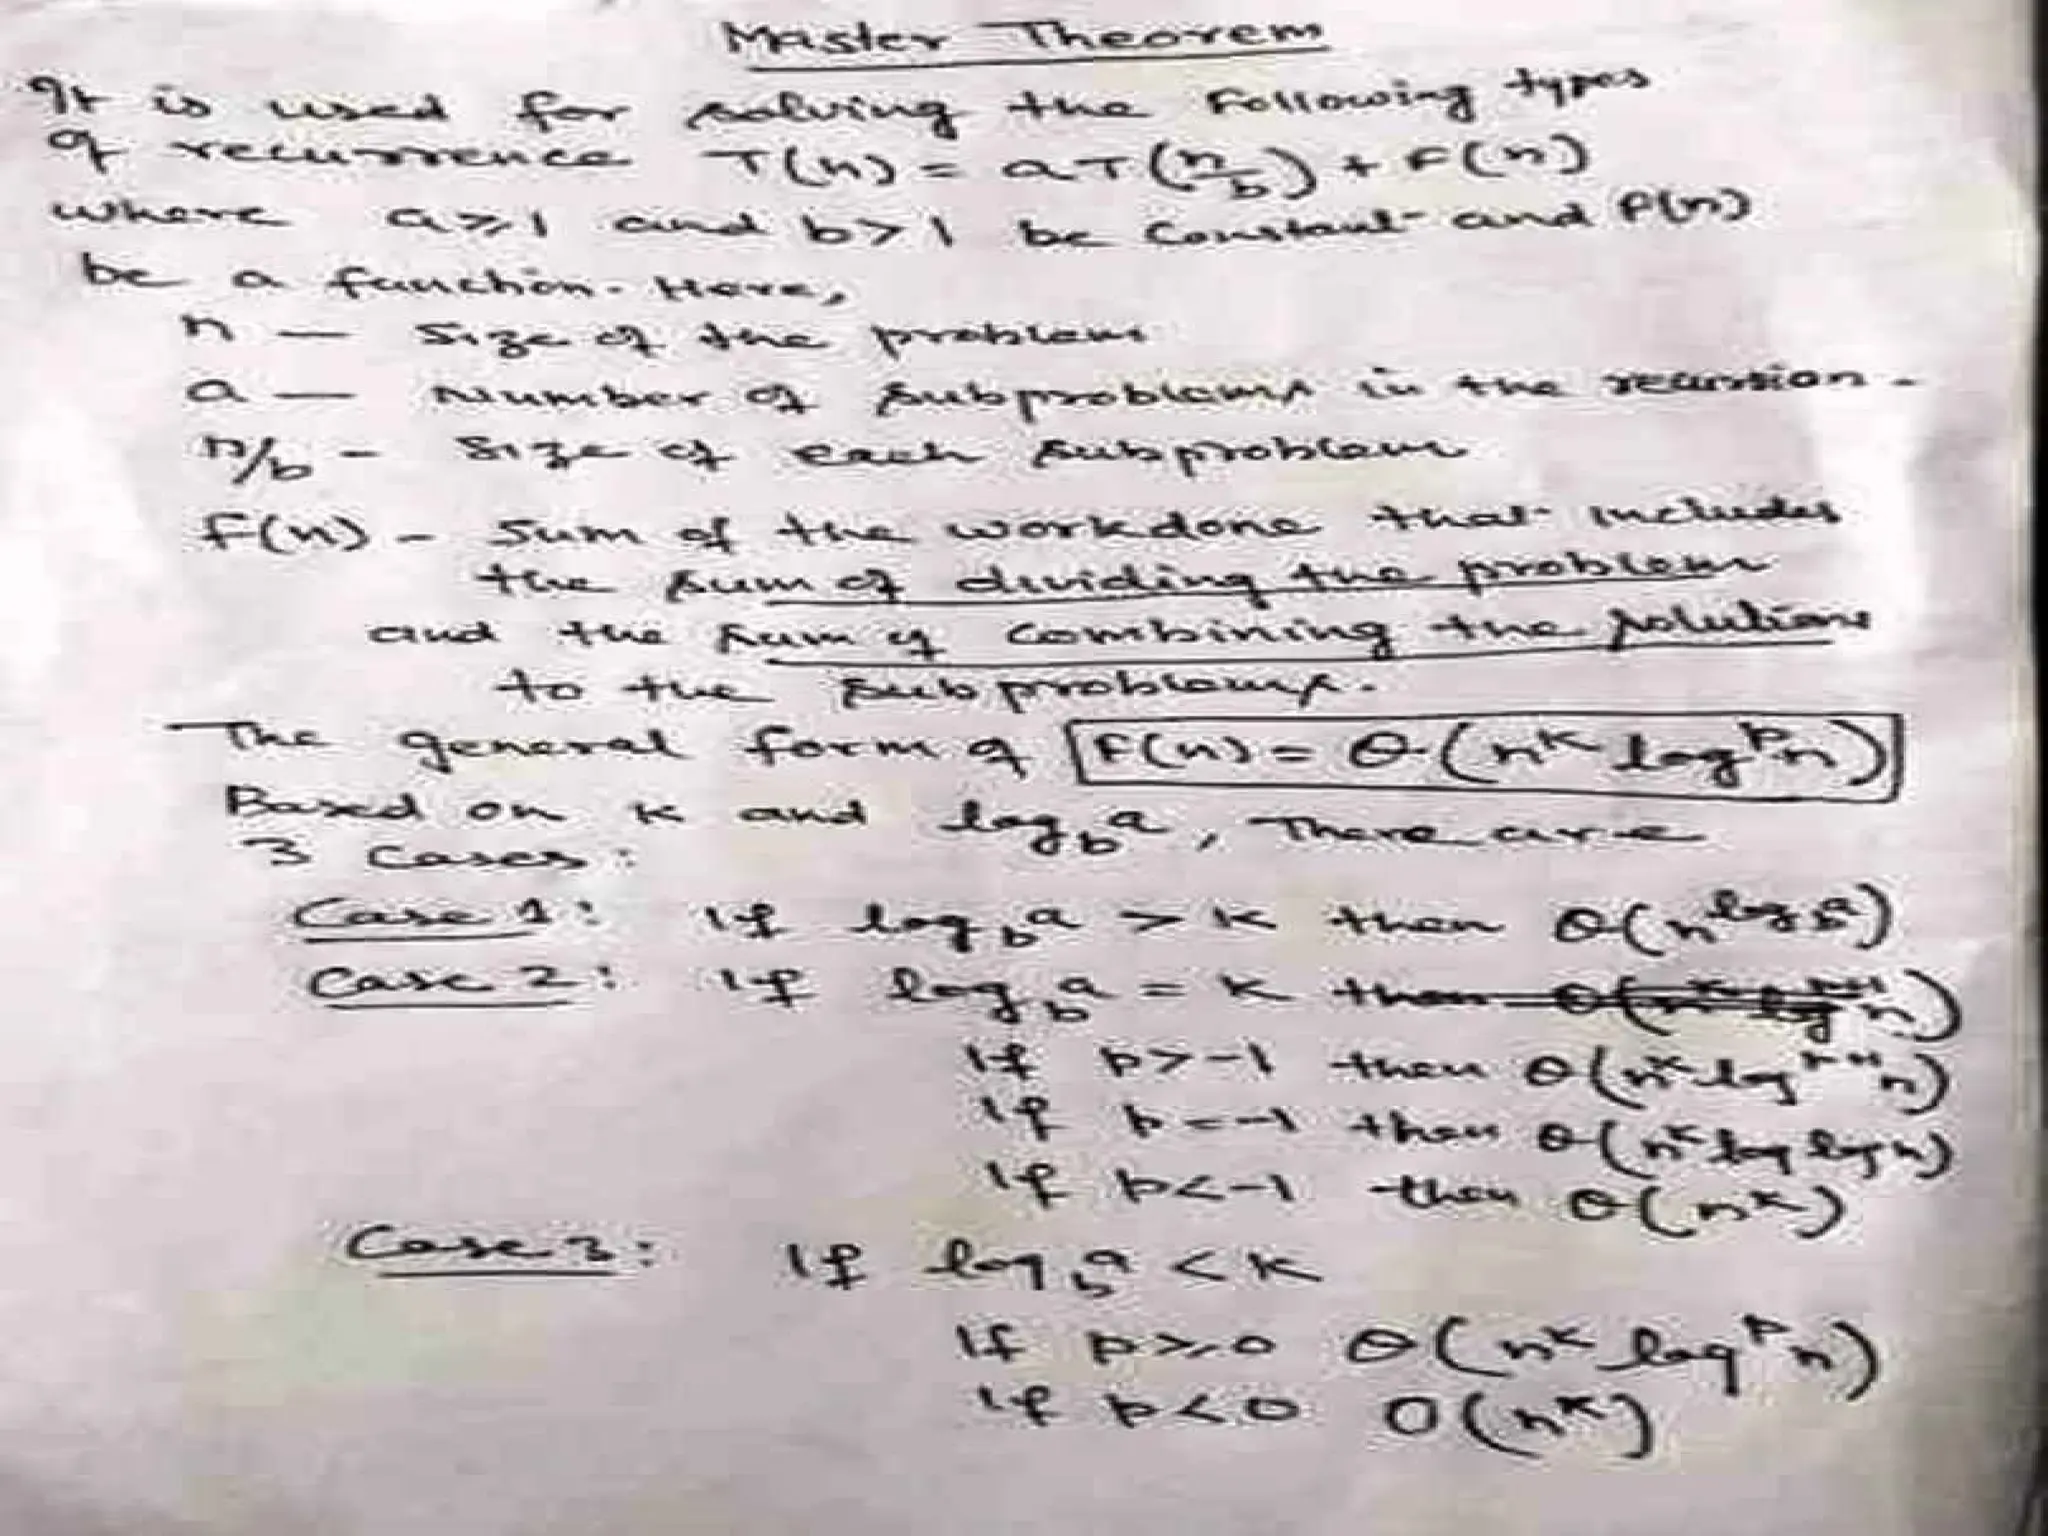 Master Theorem
It is used for solving the following types
of recurrence T(n) = aT(n/b) + F(n)
where a ≥ 1 and b > 1 be constant and F(n)
be a function. Here,
n — Size of the problem
a — Number of subproblems in the recursion.
n/b - Size of each subproblem
F(n) - Sum of the workdone that includes
the sum of dividing the problem
and the sum of combining the solutions
to the subproblems.
The general form of F(n) = θ(n^k log^p n)
Based on k and log_b a, There are
3 Cases:
Case 1: If log_b a > k then θ(n^log_b a)
Case 2: If log_b a = k then θ(n^k log^p+1 n)
If p > -1 then θ(n^k log^p+1 n)
If p = -1 then θ(n^k log log n)
If p < -1 then θ(n^k)
Case 3: If log_b a < k
If p ≥ 0 θ(n^k log^p n)
If p < 0 O(n^k)